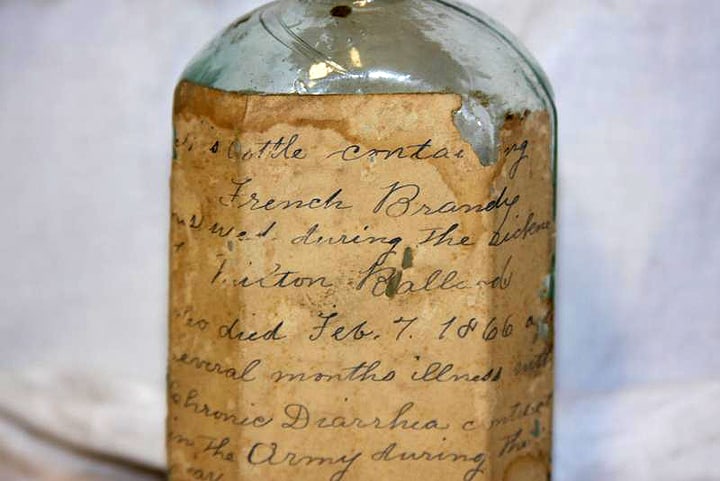 s bottle contai ng
French Brandy
was used during the sickne
Milton Ballard
who died Feb. 7. 1866 a
several months illness with
Chronic Diarrhea contract
in the Army during the